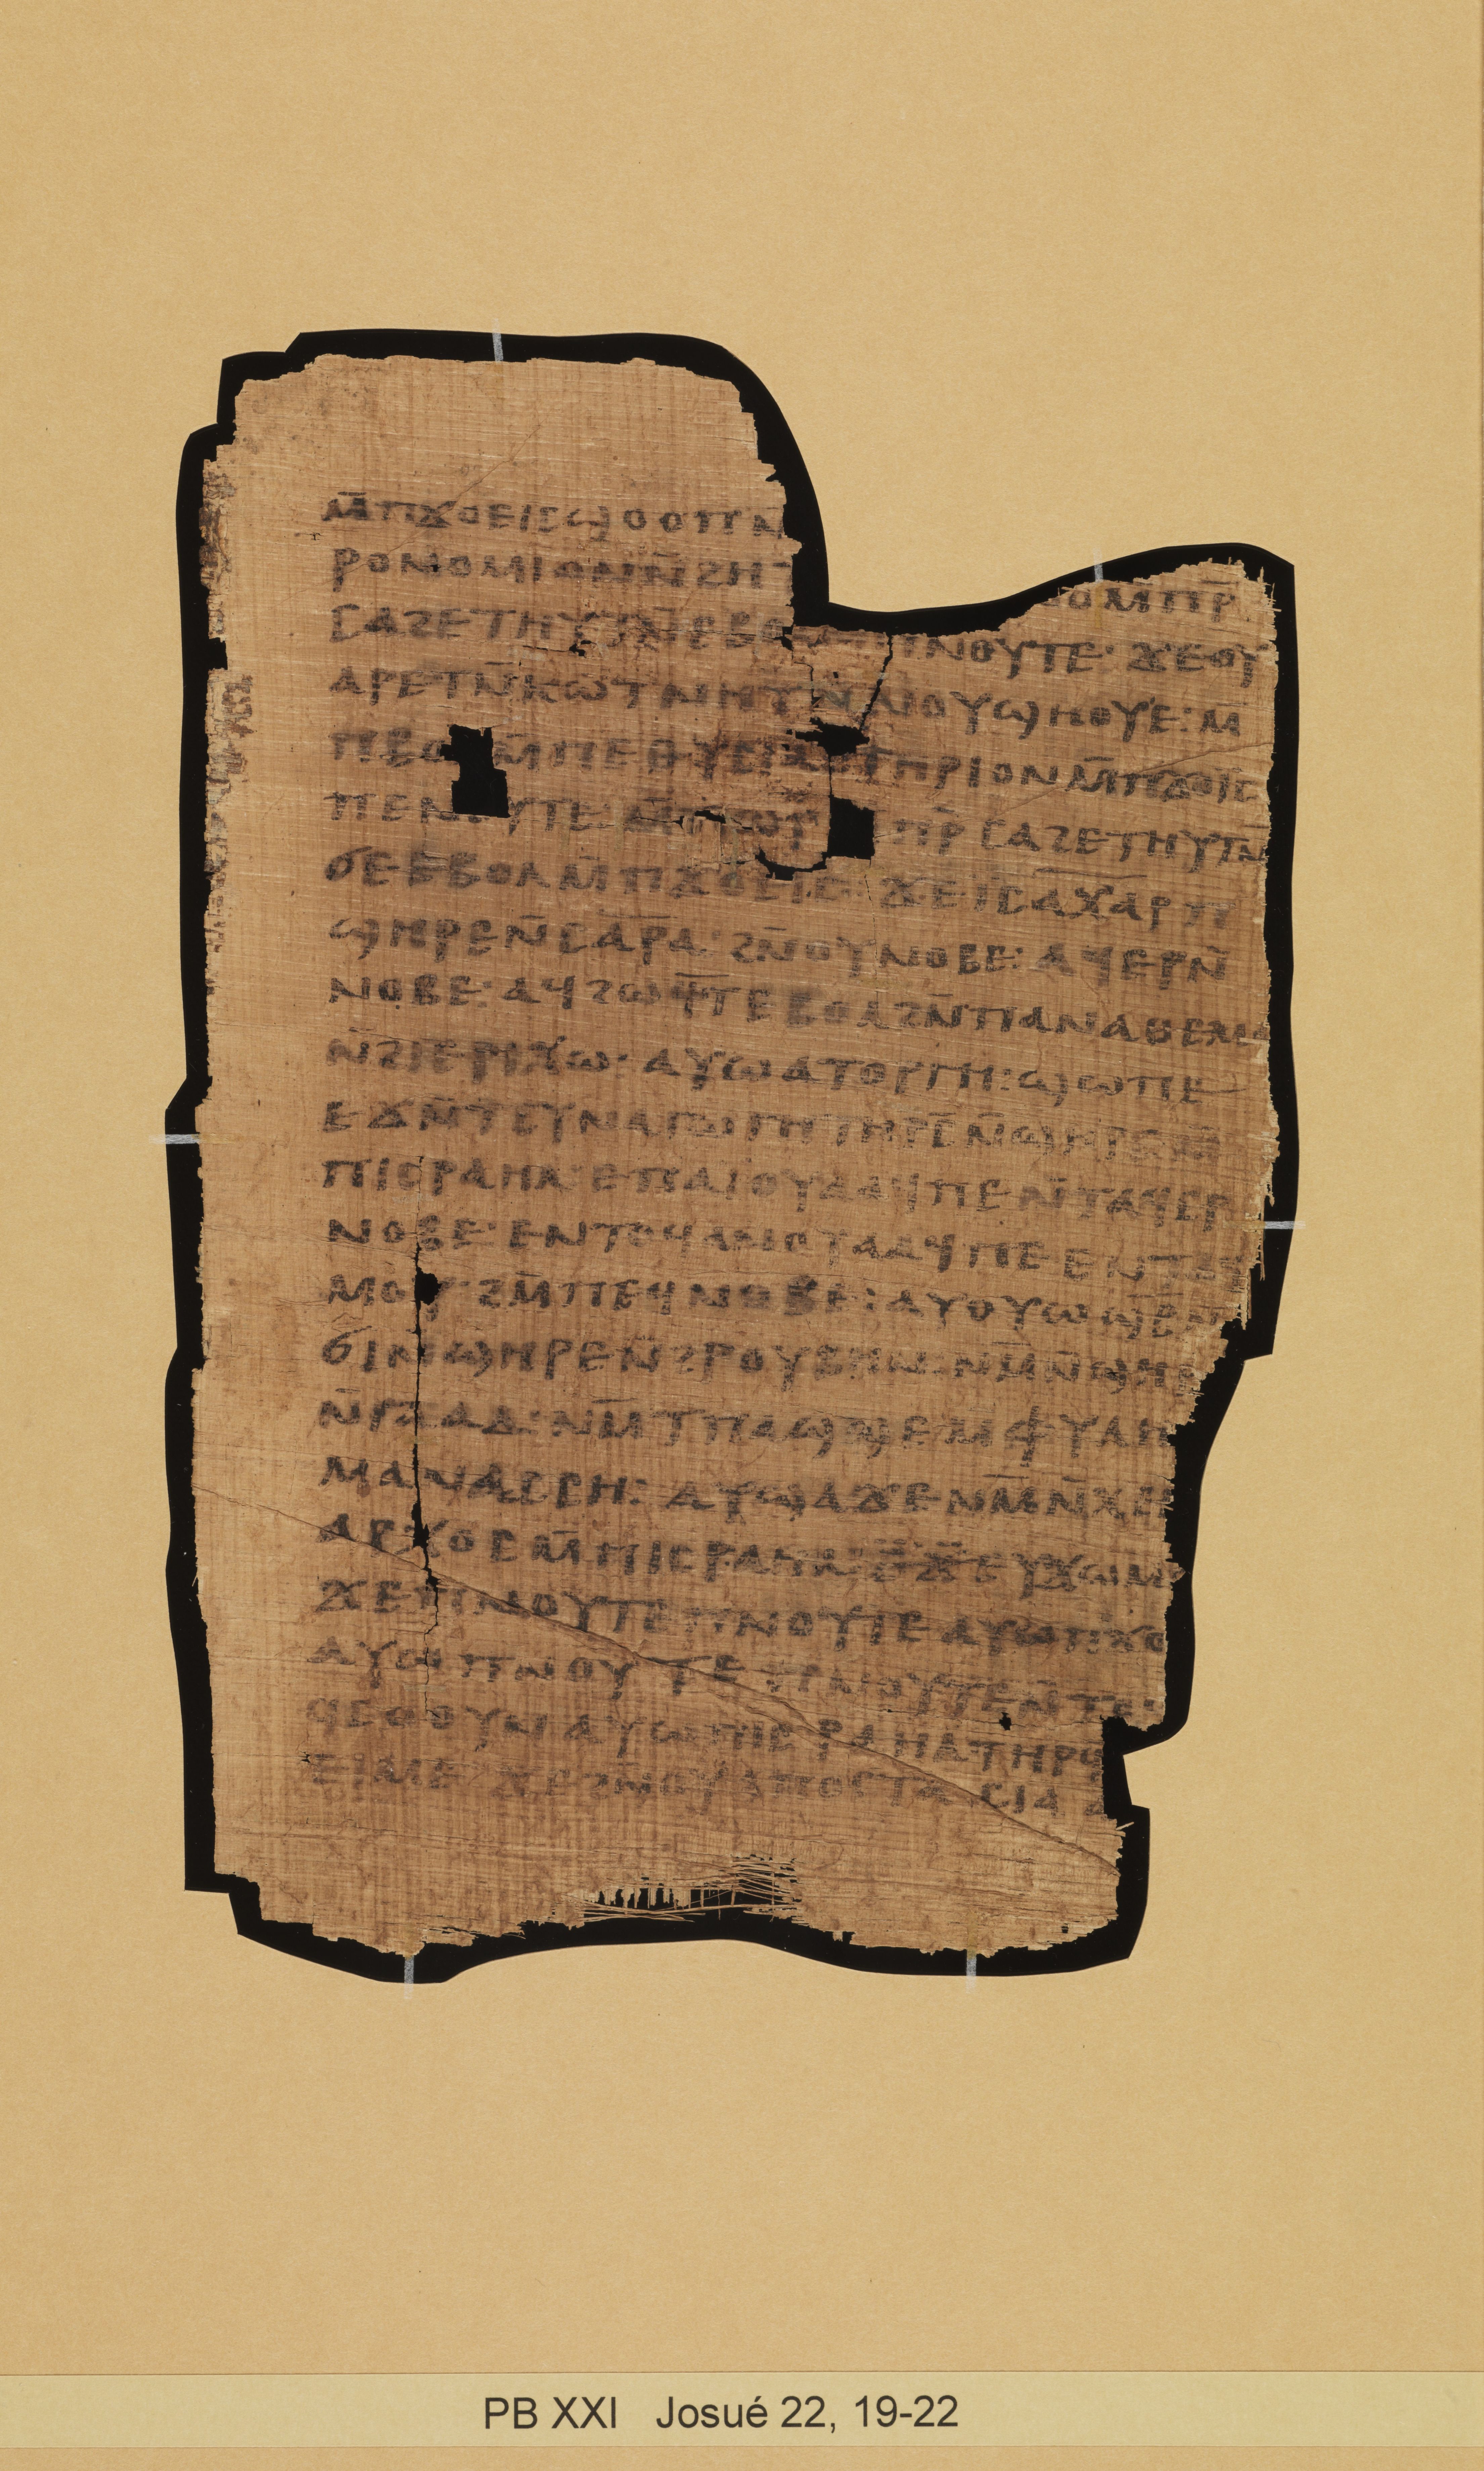 ⲙ̄ⲡϫⲟⲉⲓⲥϣⲟⲟⲡⲛ
ⲣⲟⲛⲟⲙⲓⲁⲛⲛ̄ϩⲏⲧ ⲃⲟⲗⲙ̄ⲡⲣ̄
ⲥⲁϩⲉⲧⲏⲩⲧⲛ̄ⲉⲃⲟⲗⲙ̄ⲡⲛⲟⲩⲧⲉ· ϫⲉⲟⲩ
ⲁⲣⲉⲧⲛ̄ⲕⲱⲧⲛⲏⲧⲛ̄ⲛⲟⲩϣⲏⲟⲩⲉ: ⲙ
ⲡⲃⲟ ⲙ̄ⲡⲉⲑⲩⲥⲓⲁⲥⲧⲏⲣⲓⲟⲛⲙ̄ⲡϫⲟⲓⲥ
ⲡⲉⲛ ⲩⲧⲉ ⲙ̄ⲡⲣ̄ⲥⲁϩⲉⲧⲏⲩⲧⲛ̄
ϭⲉⲉⲃⲟⲗⲙ̄ⲡϫⲟⲉⲓⲥ· ϫⲉⲓⲥⲁⲭⲁⲣⲡ
ϣⲏⲣⲉⲛ̄ⲥⲁⲣⲁ· ϩⲛ̄ⲟⲩⲛⲟⲃⲉ: ⲁϥⲉⲣⲛ̄
ⲛⲟⲃⲉ· ⲁϥϩⲱϥⲧⲉⲃⲟⲗϩⲛ̄ⲡⲁⲛⲁⲑⲉⲙⲁ
ⲛ̄ϩⲓⲉⲣⲓⲭⲱ· ⲁⲩⲱⲁⲧⲟⲣⲅⲏ: ϣⲱⲡⲉ
ⲉϫⲛ̄ⲧⲥⲩⲛⲁⲅⲱⲅⲏⲧⲏⲣⲥ̄ⲛ̄ϣⲏⲣⲉⲙ̄
ⲡⲓⲥⲣⲁⲏⲗ· ⲉⲡⲁⲓⲟⲩⲁⲁϥⲡⲉⲛ̄ⲧⲁϥⲉⲣ
ⲛⲟⲃⲉ· ⲉⲛⲧⲟϥⲁⲛⲟⲩⲁⲁϥⲡⲉⲉⲛⲧⲁϥ
ⲙⲟⲩ· ϩⲙ̄ⲡⲉϥⲛⲟⲃⲉ: ⲁⲩⲟⲩⲱϣⲃ̄ⲛ
ϭⲓⲛ̄ϣⲏⲣⲉⲛ̄ϩⲣⲟⲩⲃⲏⲛ· ⲛⲙ̄ⲛ̄ϣⲏⲣ
ⲛ̄ⲅⲁⲇ· ⲛⲙ̄ⲧⲡⲁϣϣⲉⲙⲫⲩⲗⲏ
ⲙⲁⲛⲁⲥⲥⲏ: ⲁⲩϣⲁϫⲉⲛⲙ̄ⲛ̄ⲭⲓ
ⲁⲣⲭⲟⲥⲙ̄ⲡⲓⲥⲣⲁⲏⲗ· ⲉⲩϫⲱⲙ
ϫⲉⲡⲛⲟⲩⲧⲉⲡⲛⲟⲩⲧⲉ ⲁⲩⲱⲡϫⲟ
ⲁⲩⲱⲡⲛⲟⲩⲧⲉ ⲡⲛⲟⲩⲧⲉⲛ̄ⲧⲉ
ϥⲥⲟⲟⲩⲛ ⲁⲩⲱⲡⲓⲥⲣⲁⲏⲗⲧⲏⲣϥ
ⲉⲓⲙⲉ· ϫⲉϩⲛ̄ⲟⲩⲁⲡⲟⲥⲧⲁⲥⲓⲁ
PB XXI Josué 22, 19-22